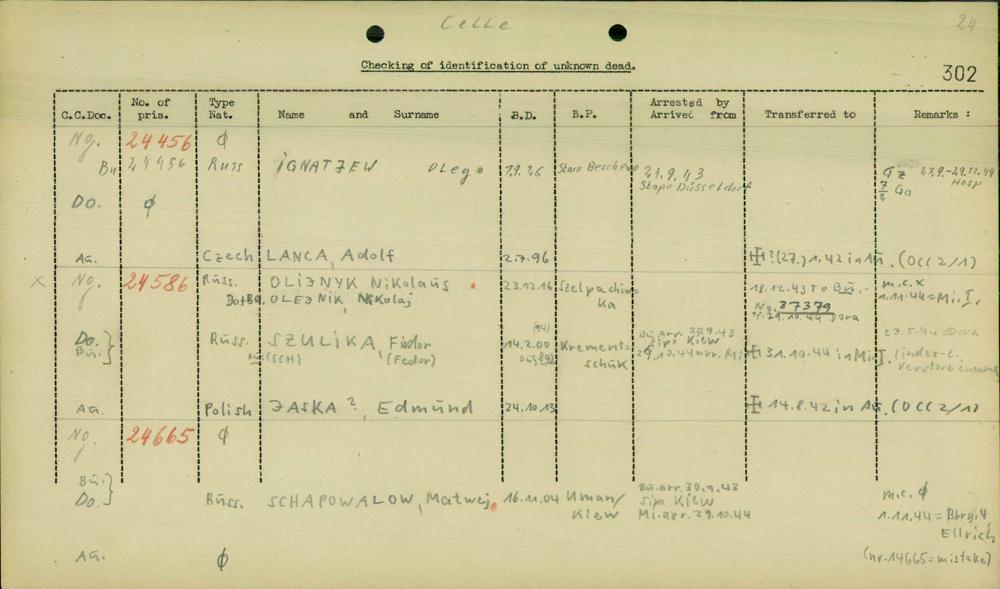 Celle
24
Checking of identification of unknown dead.
302
C.C.Doc. No. of pris. Type Nat. Name and Surname B.D. B.P. Arrested by Arrived from Transferred to Remarks :
Ng. 24456 ϕ
Bu 24456 Russ IGNATJEW Oleg 7.9.26 Staro Beschewo 24.9.43 Stapo Düsseldorf Gz 27.9.-29.12.44 Hosp
7/2 Ga
Do. ϕ
Au. Czech LANCA, Adolf 2.7.96 ? (27.) 1.42 in Au. (OCC 2/1)
x Ng. 24586 Russ. OLIJNYK Nikolaus 23.12.16 18.12.43 to Bu.- m.c.x
Do+Bu. OLEJNIK, Nikolaj ka No. 37379 1.11.44=Mi.I.
29.10.44 Dora
Do. Bu. } Russ. SZULIKA, Fiodor 14.2.00 Krementschuk Bu.arr. 30.9.43 Sipo Kiew 23.5.44=Dora
(SCH) (Fedor) 29.10.44 arr. Mi 31.10.44 in Mi I.
Au. Polish JASKA?, Edmund 24.10.13 14.8.42 in Au. (OCC 2/1)
Ng. 24665 ϕ
Bu. Do. } Russ. SCHAPOWALOW, Matwej 16.11.04 Uman/ Kiew Bu.arr. 30.9.43 Sipo Kiew Mi.arr. 29.10.44 m.c. ϕ
1.11.44=Bbrg. 4
Ellrich
Au. ϕ (nr. 14665=mistake)